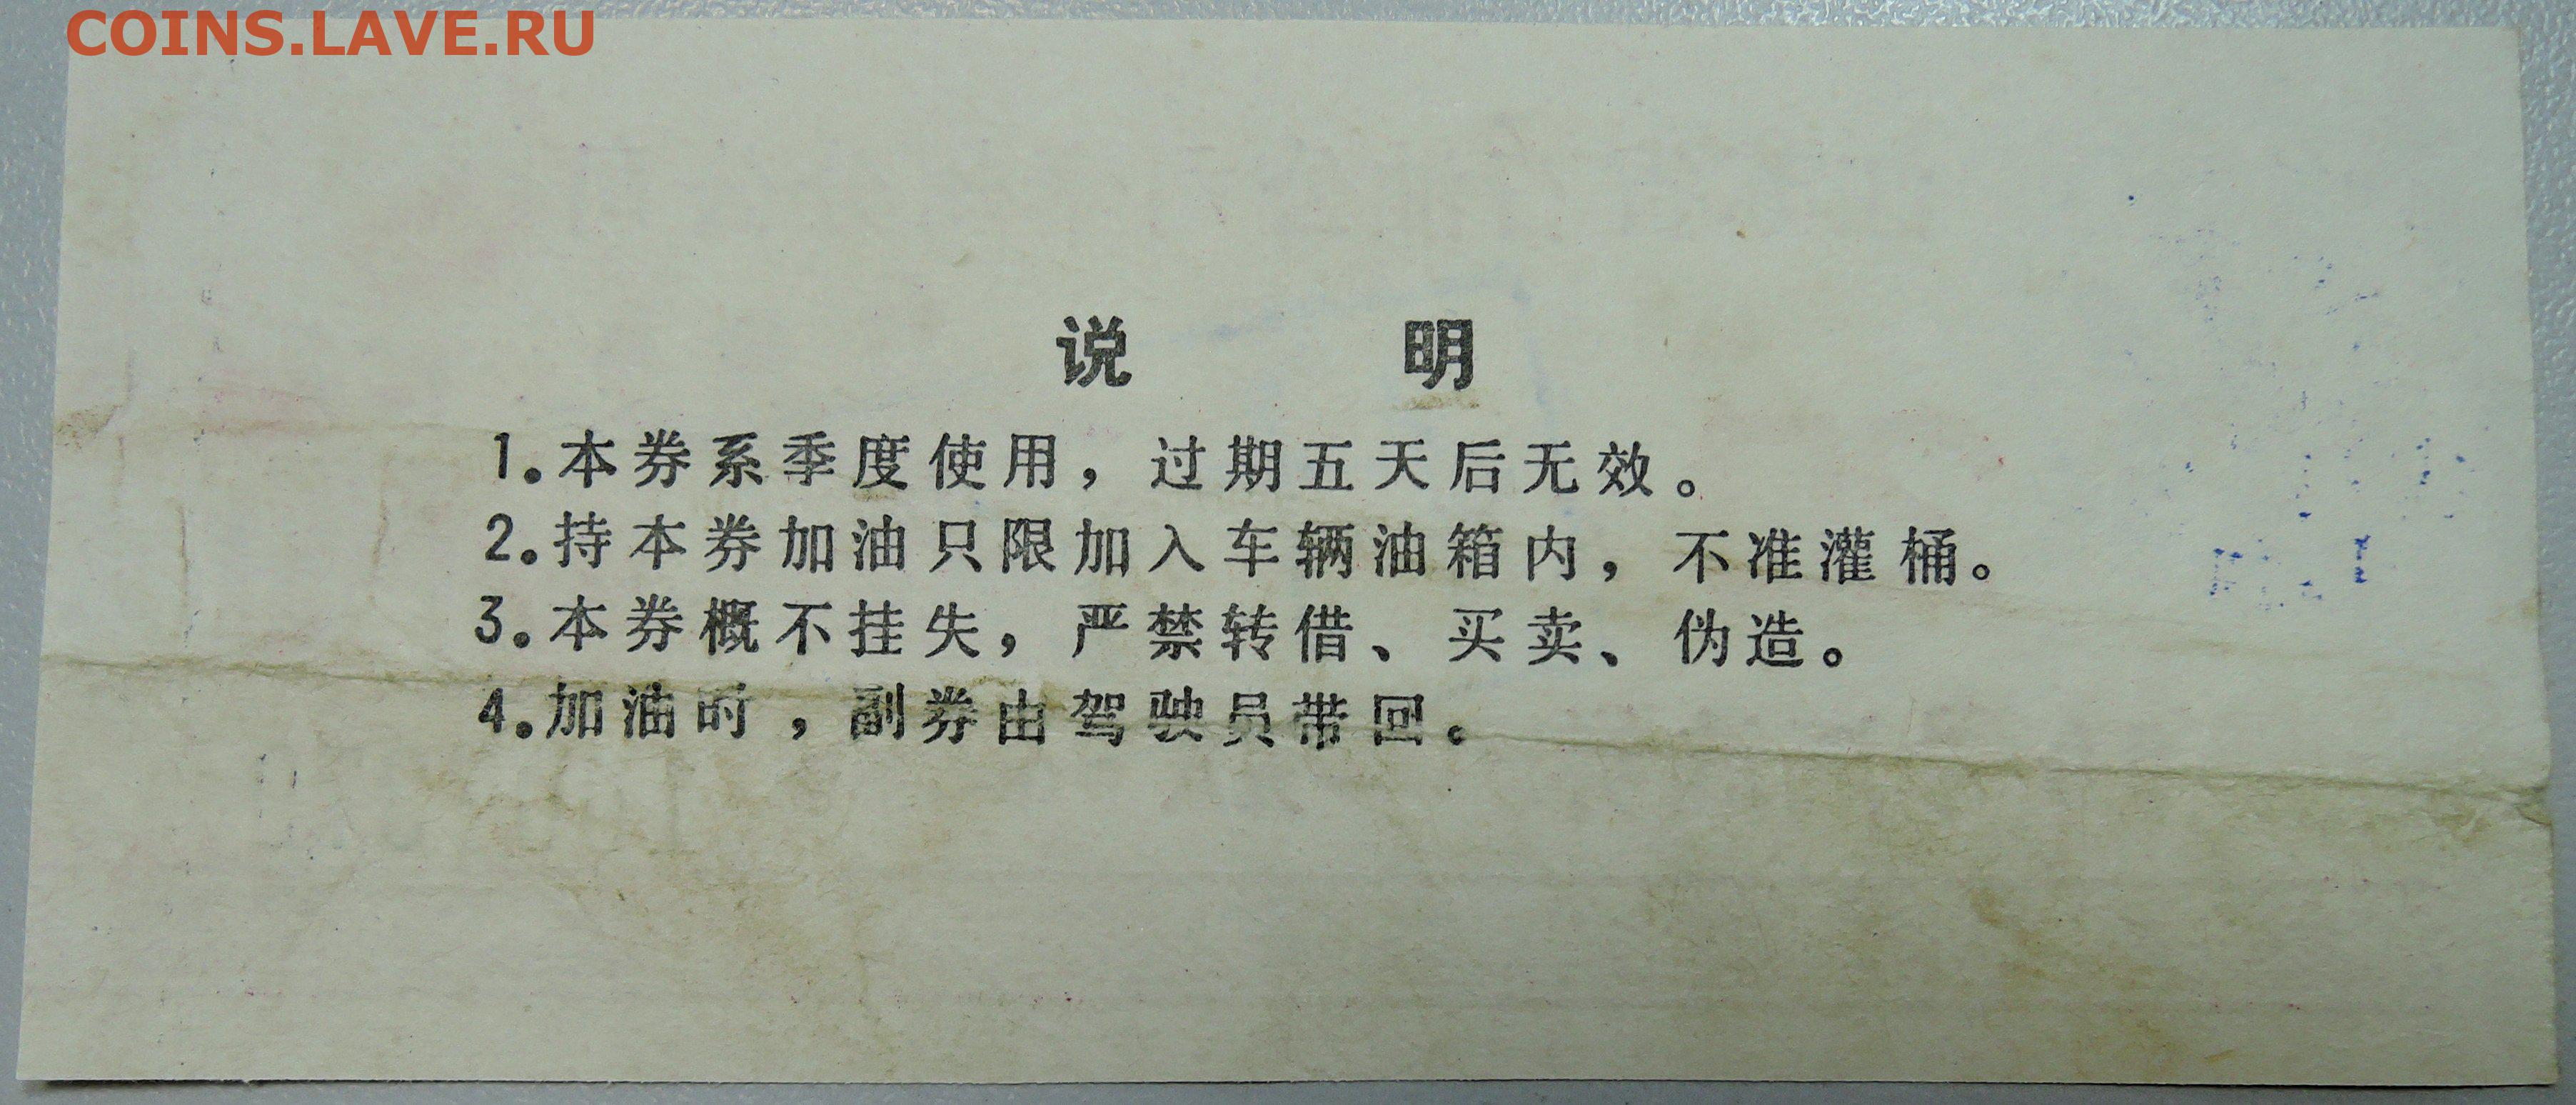 COINS.LAVE.RU
说 明
1.本券系季度使用，过期五天后无效。
2.持本券加油只限加入车辆油箱内，不准灌桶。
3.本券概不挂失，严禁转借、买卖、伪造。
4.加油时，副券由驾驶员带回。